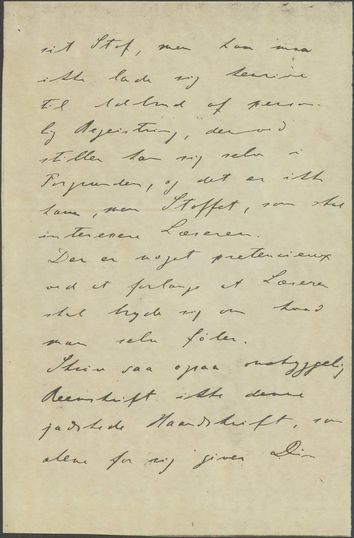 sit Stof, men han maa
ikke lade sig henrive
til Udbrud af person-
lig Begejstring, derved
stiller han sig selv i
Forgrunden, og det er ikke
ham, men Stoffet, som skal
interessere Læseren.
Der er noget pretencieux
ved at forlange at Læseren
skal bryde sig om hvad
man selv føler.
Skriv saa ogsaa omhyggelig
Reenskrift ikke denne
jadskede Haandskrift, som
alene for sig giver Din